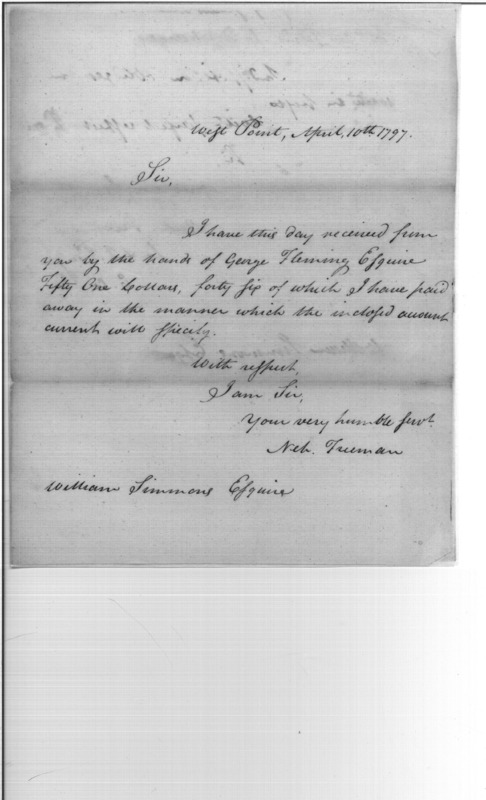 West Point, April, 10th 1797.
Sir,
I have this day received from
you by the hands of George Fleming Esquire
Fifty One Dollars, forty six of which I have paid
away in the manner which the inclosed account
current will specify.
With respect,
I am Sir,
Your very humble servt.
Neh. Freeman
William Simmons Esquire